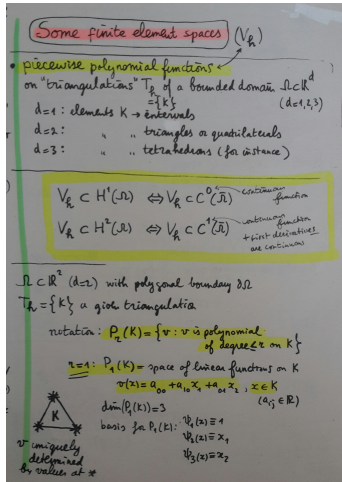 Some finite element spaces (V_h)
• piecewise polynomial functions
on "triangulations" T_h of a bounded domain Ω⊂ℝ^d
= {K} (d=1,2,3)
d=1 : elements K → intervals
d=2 : " " triangles or quadrilaterals
d=3 : " " tetrahedrons (for instance)
V_h ⊂ H¹(Ω) ⇔ V_h ⊂ C⁰(Ω̄) continuous function
V_h ⊂ H²(Ω) ⇔ V_h ⊂ C¹(Ω̄) continuous function
+ first derivatives
are continuous
Ω⊂ℝ² (d=2) with polygonal boundary ∂Ω
T_h = {K} a given triangulation
notation : P_r(K) = {v : v is polynomial
of degree ≤ r on K}
r=1 : P_1(K) = space of linear functions on K
v(x) = a_00 + a_10 x_1 + a_01 x_2 , x ∈ K
(a_ij ∈ ℝ)
dim(P_1(K)) = 3
basis for P_1(K) : ψ_1(x) ≡ 1
ψ_2(x) ≡ x_1
ψ_3(x) ≡ x_2
K
v uniquely
determined
by values at *